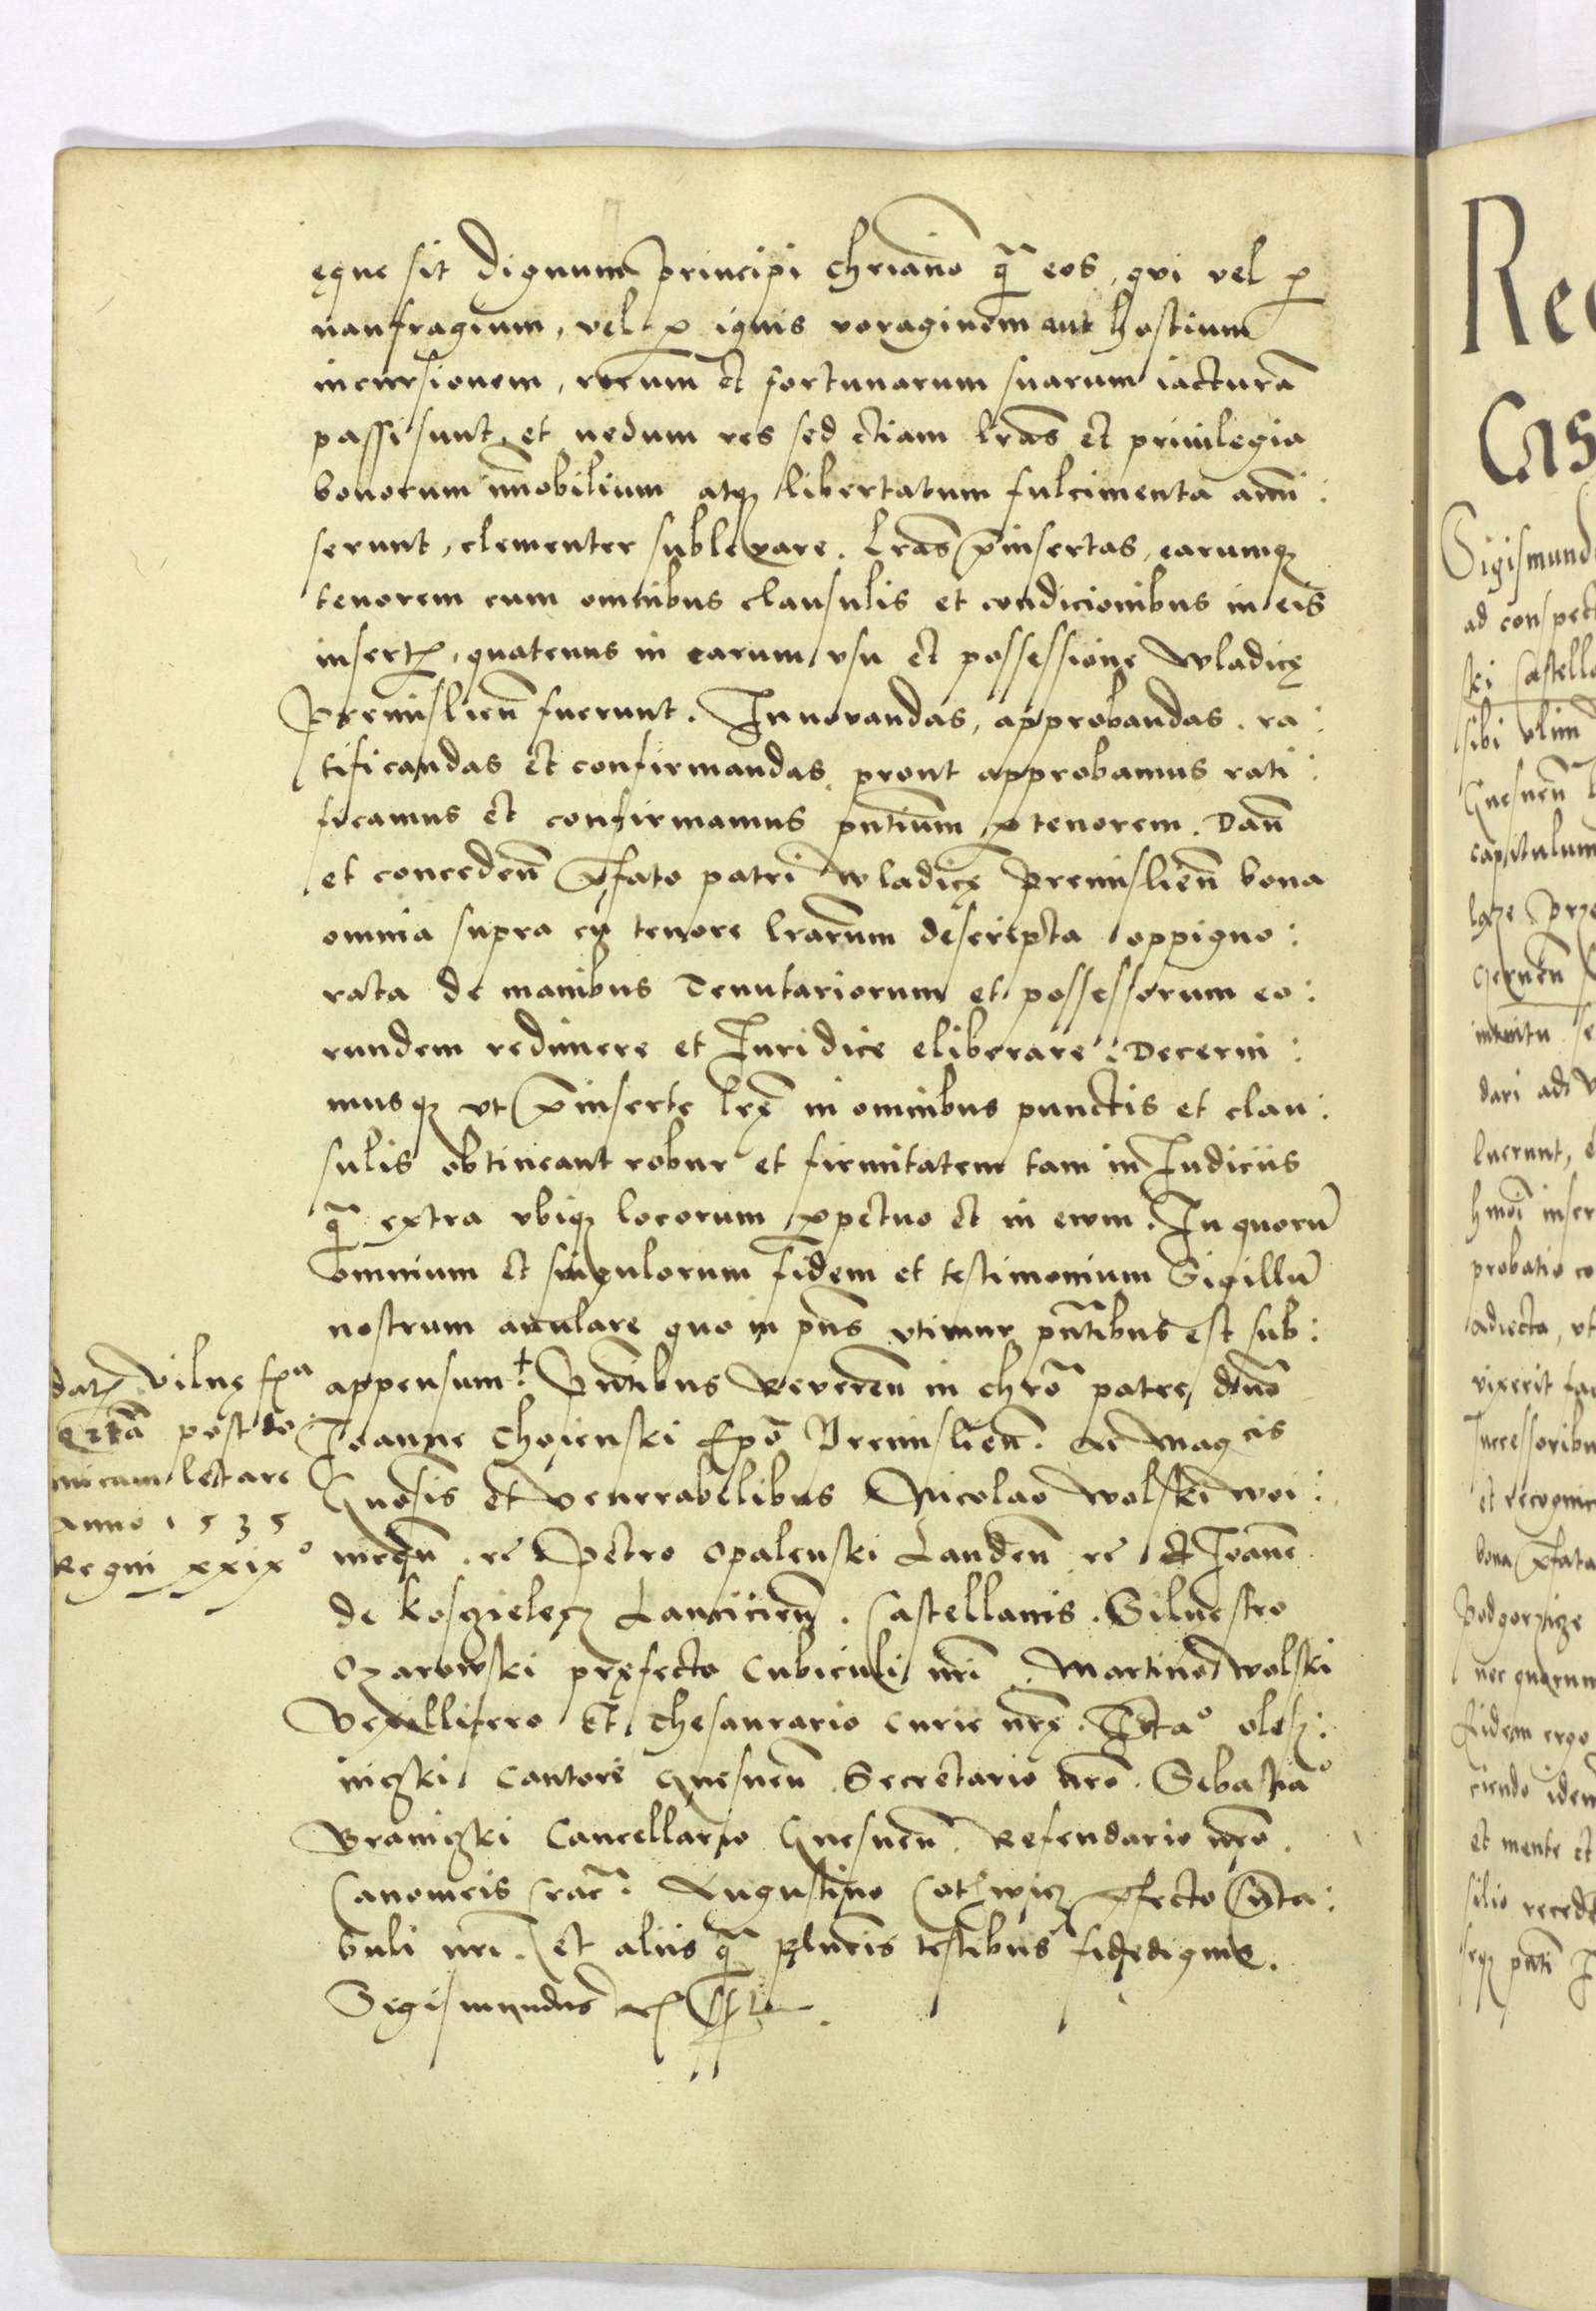 ęque sit dignum principi chriano q̄ eos, qui vel p
naufragium, vel p ignis voraginem aut hostium
incursionem, rerum et fortunarum suarum iacturā
passi sunt, et nedum res sed etiam lrās et priuilegia
bonorum īmobilium atq libertatum fulcimenta amī:
serunt, clementer subleuare. Lrās p̄insertas, earumq
tenorem cum omnibus clausulis et condicionibus in eis
insert, quatenus in earum vsu et possessione wladicę
Premislieñ fuerunt. Innouandas, approbandas. ra:
tificandas et confirmandas. prout approbamus rati:
ficamus et confirmamus pn̄tium p tenorem. Dañ
et concedeñ p̄fato patri wladicę Premislieñ bona
omnia supra ex tenore lrarum descripta oppigno:
rata de manibus Tenutariorum et possessorum eo:
rundem redimere et Iuridice eliberare: Decerni:
musq vt p̄inserte lrę in omnibus punctis et clau:
sulis obtineant robur et firmitatem tam in Iudiciis
q̄ extra vbiq locorum ppetuo et in ewm. In quorū
omnium et singulorum fidem et testimonium Sigillū
nostrum anulare quo in pn̄s vtimur pn̄tibus est sub:
appensum.† Pn̄tibus Reuereñ in chrō patre dn̄o
Ioanne Choienski Ep̄o Premislieñ. Ac Mag cis
Gn̄osis et Venerabilibus Nicolao wolski woi:
niceñ. re Petro Opalenski Landeñ re et Ioanne
de Kosczielecz Lancicieñ. Castellanis. Siluestro
Ozarowski pręfecto Cubiculi nr̄i. Martino wolski
Vexillifero Et Thesaurario curie nr̄ę. olesz:
niczki Cantore Gnesneñ. Secretario nr̄o. Sebastiāo
Braniczki Cancellario Gnesneñ. Refendario nr̄o.
Canonicis crac. Augustino Cotwicz p̄fecto Sta:
buli nr̄i. Et aliis q̄ plurīs testibus fidedignis.
Sigismundus rx
Dat Vilnę fr̄a
q̄rta post do
nicam letare
Anno 1535
Regni xxix°
Rec
Cas
Sigismund
ad conspect
ski Castella
sibi olim
Gnesneñ
capitulum
dari ad
luerunt,
hmōi inser
probatio co
adiecta, vt
vixerit fac
successoribu
et recognit
bona p̄fata
Podgorzicze
nec quorum
Eidem ergo
ciendo idem
et mente et
silio recede
pn̄ti